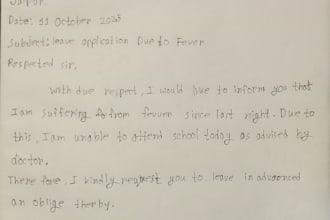 Jaipur.
Date: 11 October 2025
Subject: leave application Due to Fever.
Respected sir,
With due respect, I would like to inform you that
I am suffering from fevver since last night. Due to
this, I am unable to attend school today as advised by
doctor.
There fore, I kindly request you to leave in advanced
an oblige therby.